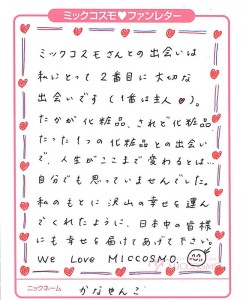 ミックコスモ♥ファンレター
ミックコスモさんとの出会いは
私にとって2番目に大切な
出会いです(1番は主人♥)。
たかが化粧品、されど化粧品
たった1つの化粧品との出会い
で、人生がここまで変わるとは…
自分でも思っていませんでした。
私のもとに沢山の幸せを運ん
でくれたように、日本中の皆様
にも幸せを届けてあげて下さい。
We Love MICCOSMO
ニックネーム かなやんこ